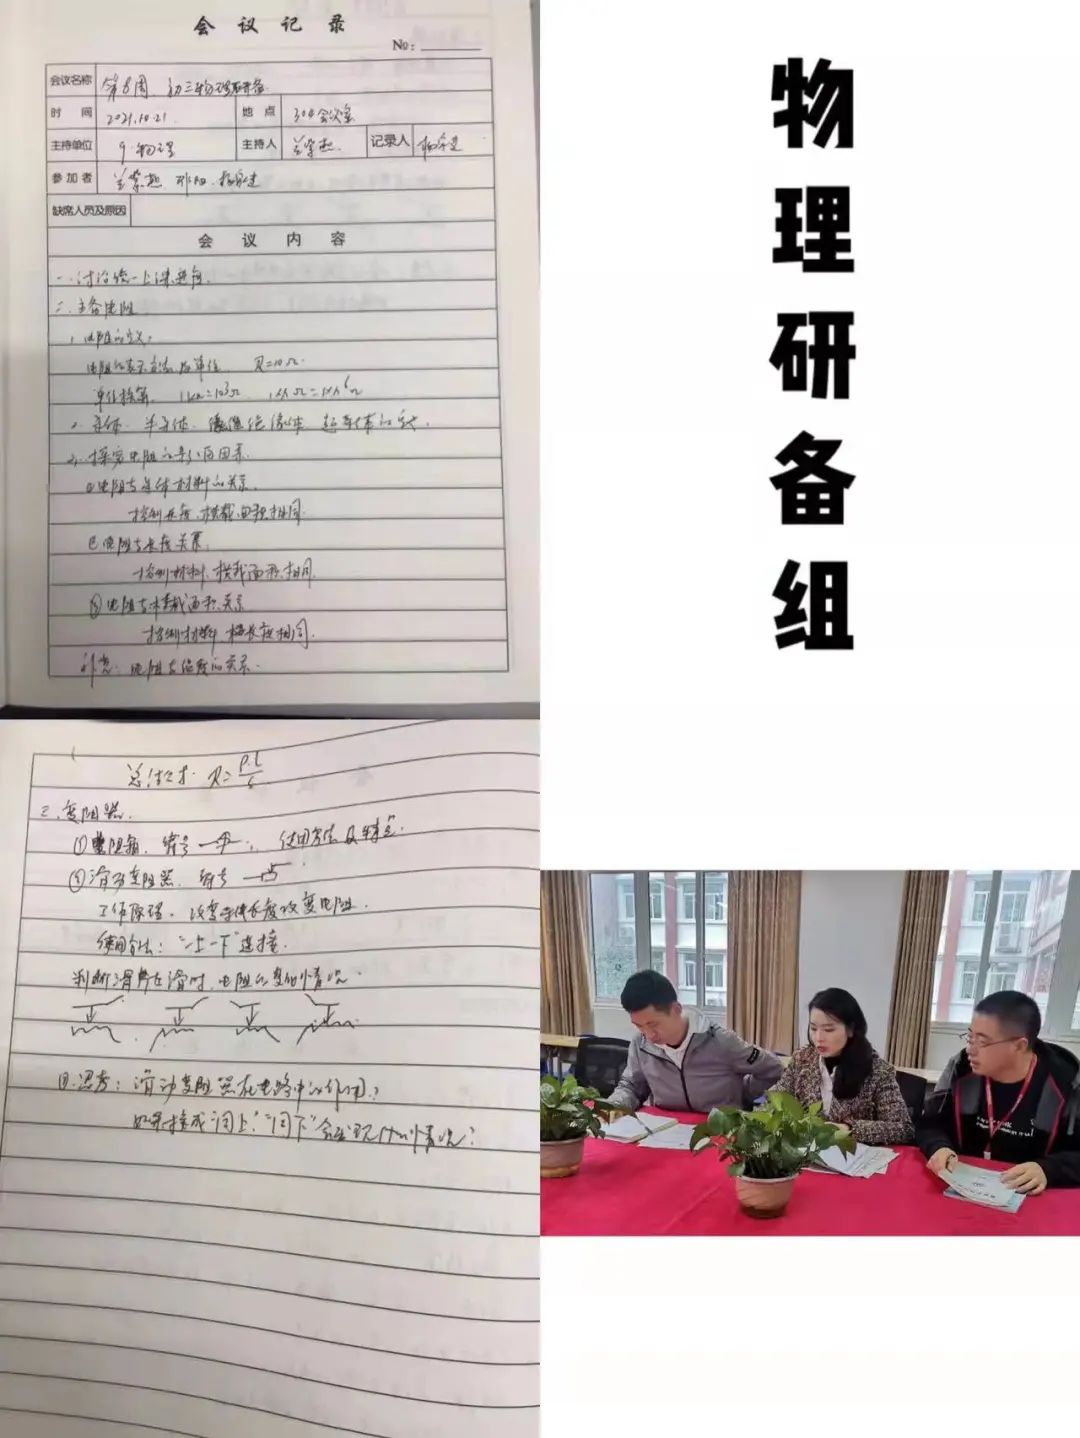 会议记录
№:
会议名称 第8周 初三物理研备
时间 2021.10.21 地点 304会议室
主持单位 9.物理 主持人 记录人
参加者
缺席人员及原因
会议内容
一.讨论统一上课进度.
二.主备电阻
1.电阻的定义:
电阻的表示方法及单位 R=10Ω.
单位换算. 1kΩ=10³Ω 1MΩ=1×10⁶Ω
2.导体.半导体.绝缘体 超导体的定义.
3.探究电阻的影响因素.
①电阻与导体材料的关系.
控制长度、横截面积相同.
②电阻与长度关系.
控制材料、横截面积相同.
③电阻与横截面积关系
控制材料、长度相同.
补充:电阻与温度的关系.
总结式:R=ρ.L/S
三.变阻器.
①电阻箱.符号 使用方法及特点.
②滑动变阻器.符号
工作原理.改变导体长度改变电阻.
使用方法:"一上一下"连接.
判断滑片在滑时,电阻的变化情况.
四.思考:滑动变阻器在电路中的作用?
如果接成"同上""同下"会出现什么情况?
物理研备组